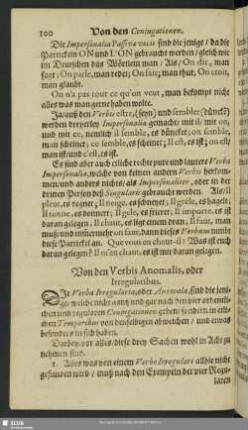 100 Von den Coniugationen.
Die Impersonalia Passivæ vocis sind die jenige / da die
Particken ON und L'ON gebraucht werden / gleich wie
im Deutschen das Wörtlein man / Als / On dit, man
sagt; On parle, man redet; On fait; man thut, On croit,
man glaubt.
On n'a pas tout ce qu'on veut, man bekompt nicht
alles was man gerne haben wolte.
Ja auß den Verbis estre, (seyn) und sembler (dünckt)
werden dergleichen Impersonalia gemacht mit il mit on,
und mit ce, nemlich il semble, es düncket; on semble,
man scheinet; ce semble, es scheinet; Il est, es ist; on est,
man ist / und c'est, es ist.
Es sind aber auch etliche rechte pure und lautere Verba
Impersonalia, welche von keinen andern Verbis herkom-
men / und anders nicht als Impersonaliter, oder in der
dritten Person des Singularis gebraucht werden. Als / Il
pleut, es regnet; Il neige, es schneyet; Il grêle, es hagelt;
Il tonne, es donnert; Il gele, es frieret; Il importe, es ist
daran gelegen; Il chaut, es ligt einem dran; Il faut, man
muß / und
diese Particket an. Que vous en chaut-il? Was ist euch
daran gelegen? Il m'en chaut, es ist mir daran gelegen.
Von den Verbis Anomalis, oder
Irregularibus.
Die Verba Irregularia, oder Anomala, sind die jeni-
ge / welche nicht gantz und gar nach den vier ordentli-
chen und regularen Coniugationen gehen / sondern in etli-
chen Temporibus von denselbigen abweichen / und etwas
besonders in sich haben.
Darbey vor allen / diese drey Sachen wohl in Acht zu
nehmen sind.
1. Alles was von einem Verbo Irregulari allhie nicht
gefunden wird / muß nach den Exempeln der vier Regu-
laren